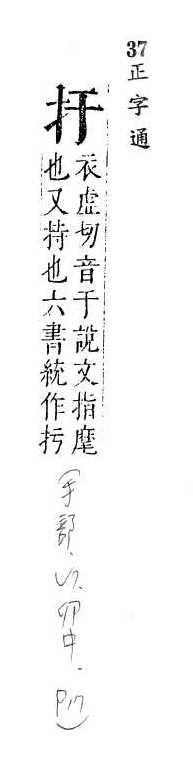 37正字通
扜
衣虛切音于說文指麾
也又持也六書統作扝
(手部. 卯中. P17)